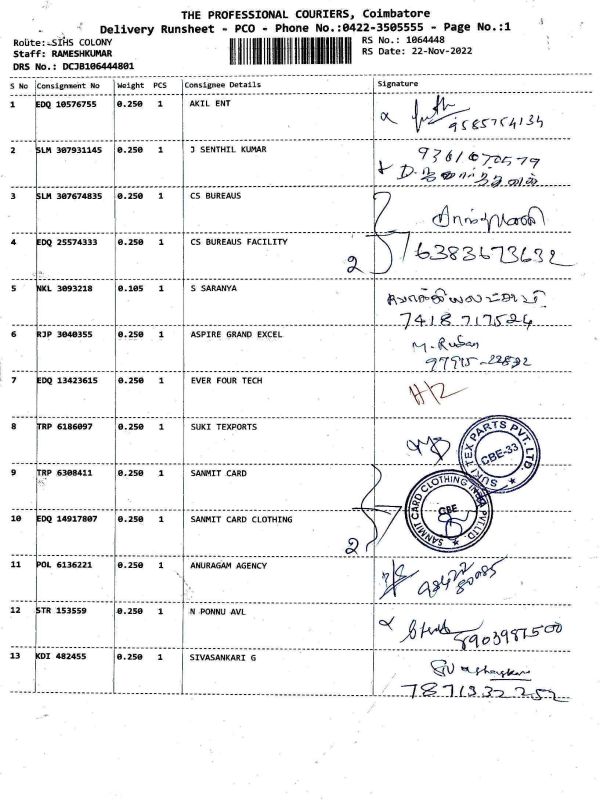 THE PROFESSIONAL COURIERS, Coimbatore
Delivery Runsheet - PCO - Phone No.:0422-3505555 - Page No.:1
Route: SIHS COLONY
RS No.: 1064448
Staff: RAMESHKUMAR
RS Date: 22-Nov-2022
DRS No.: DCJB106444801
S No Consignment No Weight PCS Consignee Details Signature
1 EDQ 10576755 0.250 1 AKIL ENT
9585754134
2 SLM 307931145 0.250 1 J SENTHIL KUMAR
9361070579
3 SLM 307674835 0.250 1 CS BUREAUS
4 EDQ 25574333 0.250 1 CS BUREAUS FACILITY
2 6383673632
5 NKL 3093218 0.105 1 S SARANYA
7418 717524
6 RJP 3040355 0.250 1 ASPIRE GRAND EXCEL M. Ruban
97915-22892
7 EDQ 13423615 0.250 1 EVER FOUR TECH
8 TRP 6186097 0.250 1 SUKI TEXPORTS
SUKI TEX PARTS PVT. LTD. CBE-33
9 TRP 6308411 0.250 1 SANMIT CARD
SANMIT CARD CLOTHING INDIA PVT LTD. CBE
10 EDQ 14917807 0.250 1 SANMIT CARD CLOTHING
2
11 POL 6136221 0.250 1 ANURAGAM AGENCY
98422 80085
12 STR 153559 0.250 1 N PONNU AVL
8903981500
13 KDI 482455 0.250 1 SIVASANKARI G
7871332252